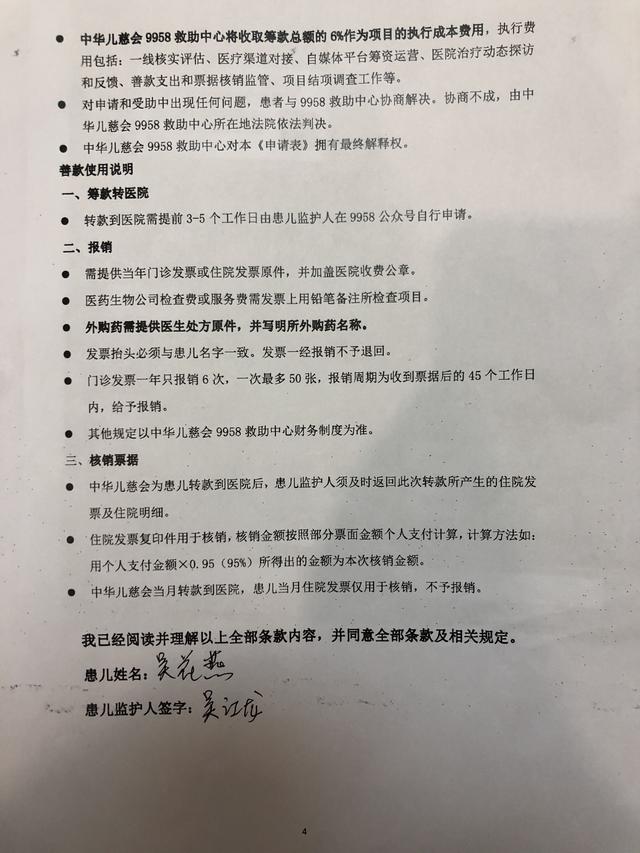 ● 中华儿慈会 9958 救助中心将收取筹款总额的 6%作为项目的执行成本费用，执行费
用包括：一线核实评估、医疗渠道对接、自媒体平台筹资运营、医院治疗动态探访
和反馈、善款支出和票据核销监管、项目结项调查工作等。
● 对申请和受助中出现任何问题，患者与 9958 救助中心协商解决。协商不成，由中
华儿慈会 9958 救助中心所在地法院依法判决。
● 中华儿慈会 9958 救助中心对本《申请表》拥有最终解释权。
善款使用说明
一、筹款转医院
● 转款到医院需提前 3-5 个工作日由患儿监护人在 9958 公众号自行申请。
二、报销
● 需提供当年门诊发票或住院发票原件，并加盖医院收费公章。
● 医药生物公司检查费或服务费需发票上用铅笔备注所检查项目。
● 外购药需提供医生处方原件，并写明所外购药名称。
● 发票抬头必须与患儿名字一致。发票一经报销不予退回。
● 门诊发票一年只报销 6 次，一次最多 50 张，报销周期为收到票据后的 45 个工作日
内，给予报销。
● 其他规定以中华儿慈会 9958 救助中心财务制度为准。
三、核销票据
● 中华儿慈会为患儿转款到医院后，患儿监护人须及时返回此次转款所产生的住院发
票及住院明细。
● 住院发票复印件用于核销，核销金额按照部分票面金额个人支付计算，计算方法如：
用个人支付金额×0.95（95%）所得出的金额为本次核销金额。
● 中华儿慈会当月转款到医院，患儿当月住院发票仅用于核销，不予报销。
我已经阅读并理解以上全部条款内容，并同意全部条款及相关规定。
患儿姓名：吴花燕
患儿监护人签字：吴江龙
4